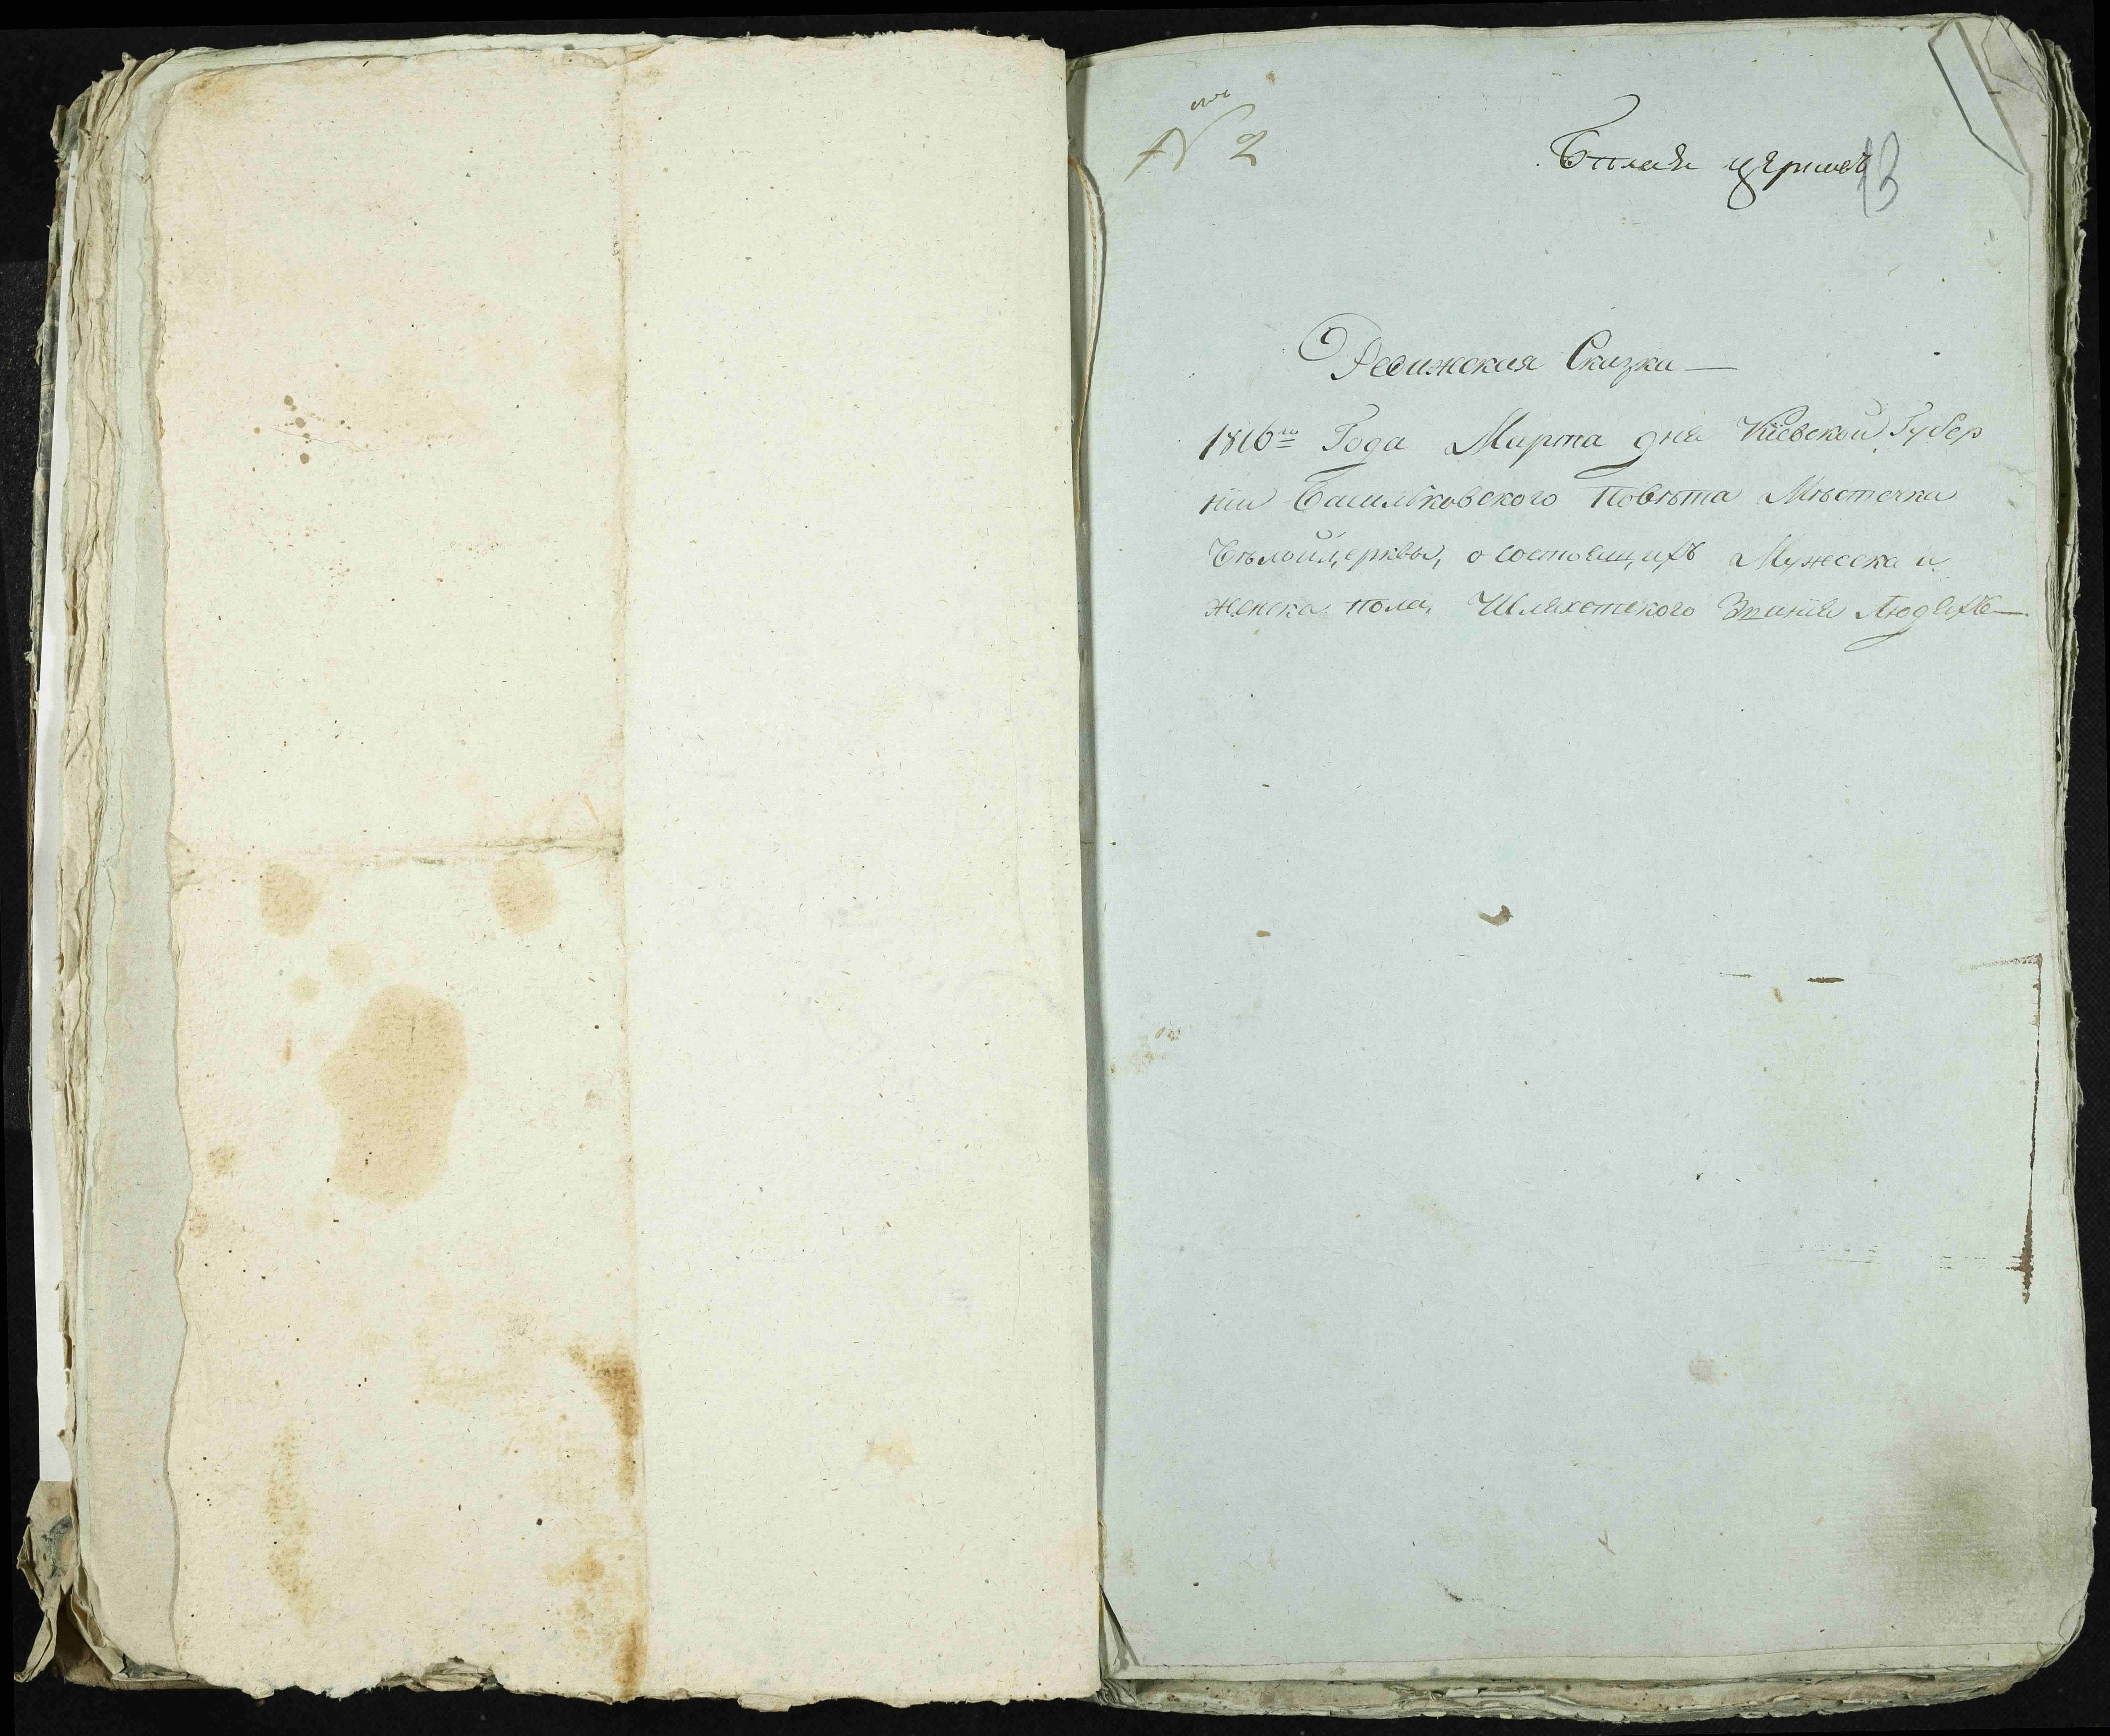 № 2
Белая церковь
13
Ревижская Сказка —
1816го Года Марта дня Кіевской Губер
ніи Васильковского Повѣта Мѣстечка
Бѣлойцерквы, о состоящихъ Мужеска и
женска пола, Шляхетского Званія Людяхъ —